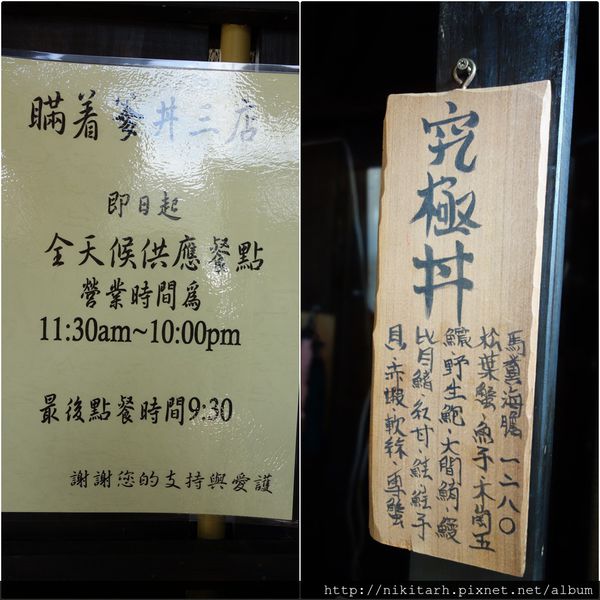 瞞着爹丼三店
即日起
全天候供應餐點
營業時間為
11:30am~10:00pm
最後點餐時間9:30
謝謝您的支持與愛護
究極丼
馬糞海膽 一二八〇
松葉蟹·魚子·木崗五
鱲·野生鮑·大間鮪·鰻
比目鰭·紅甘·鮭·鮭子
貝·赤蝦·軟絲·雪蟹
http://nikitarh.pixnet.net/album